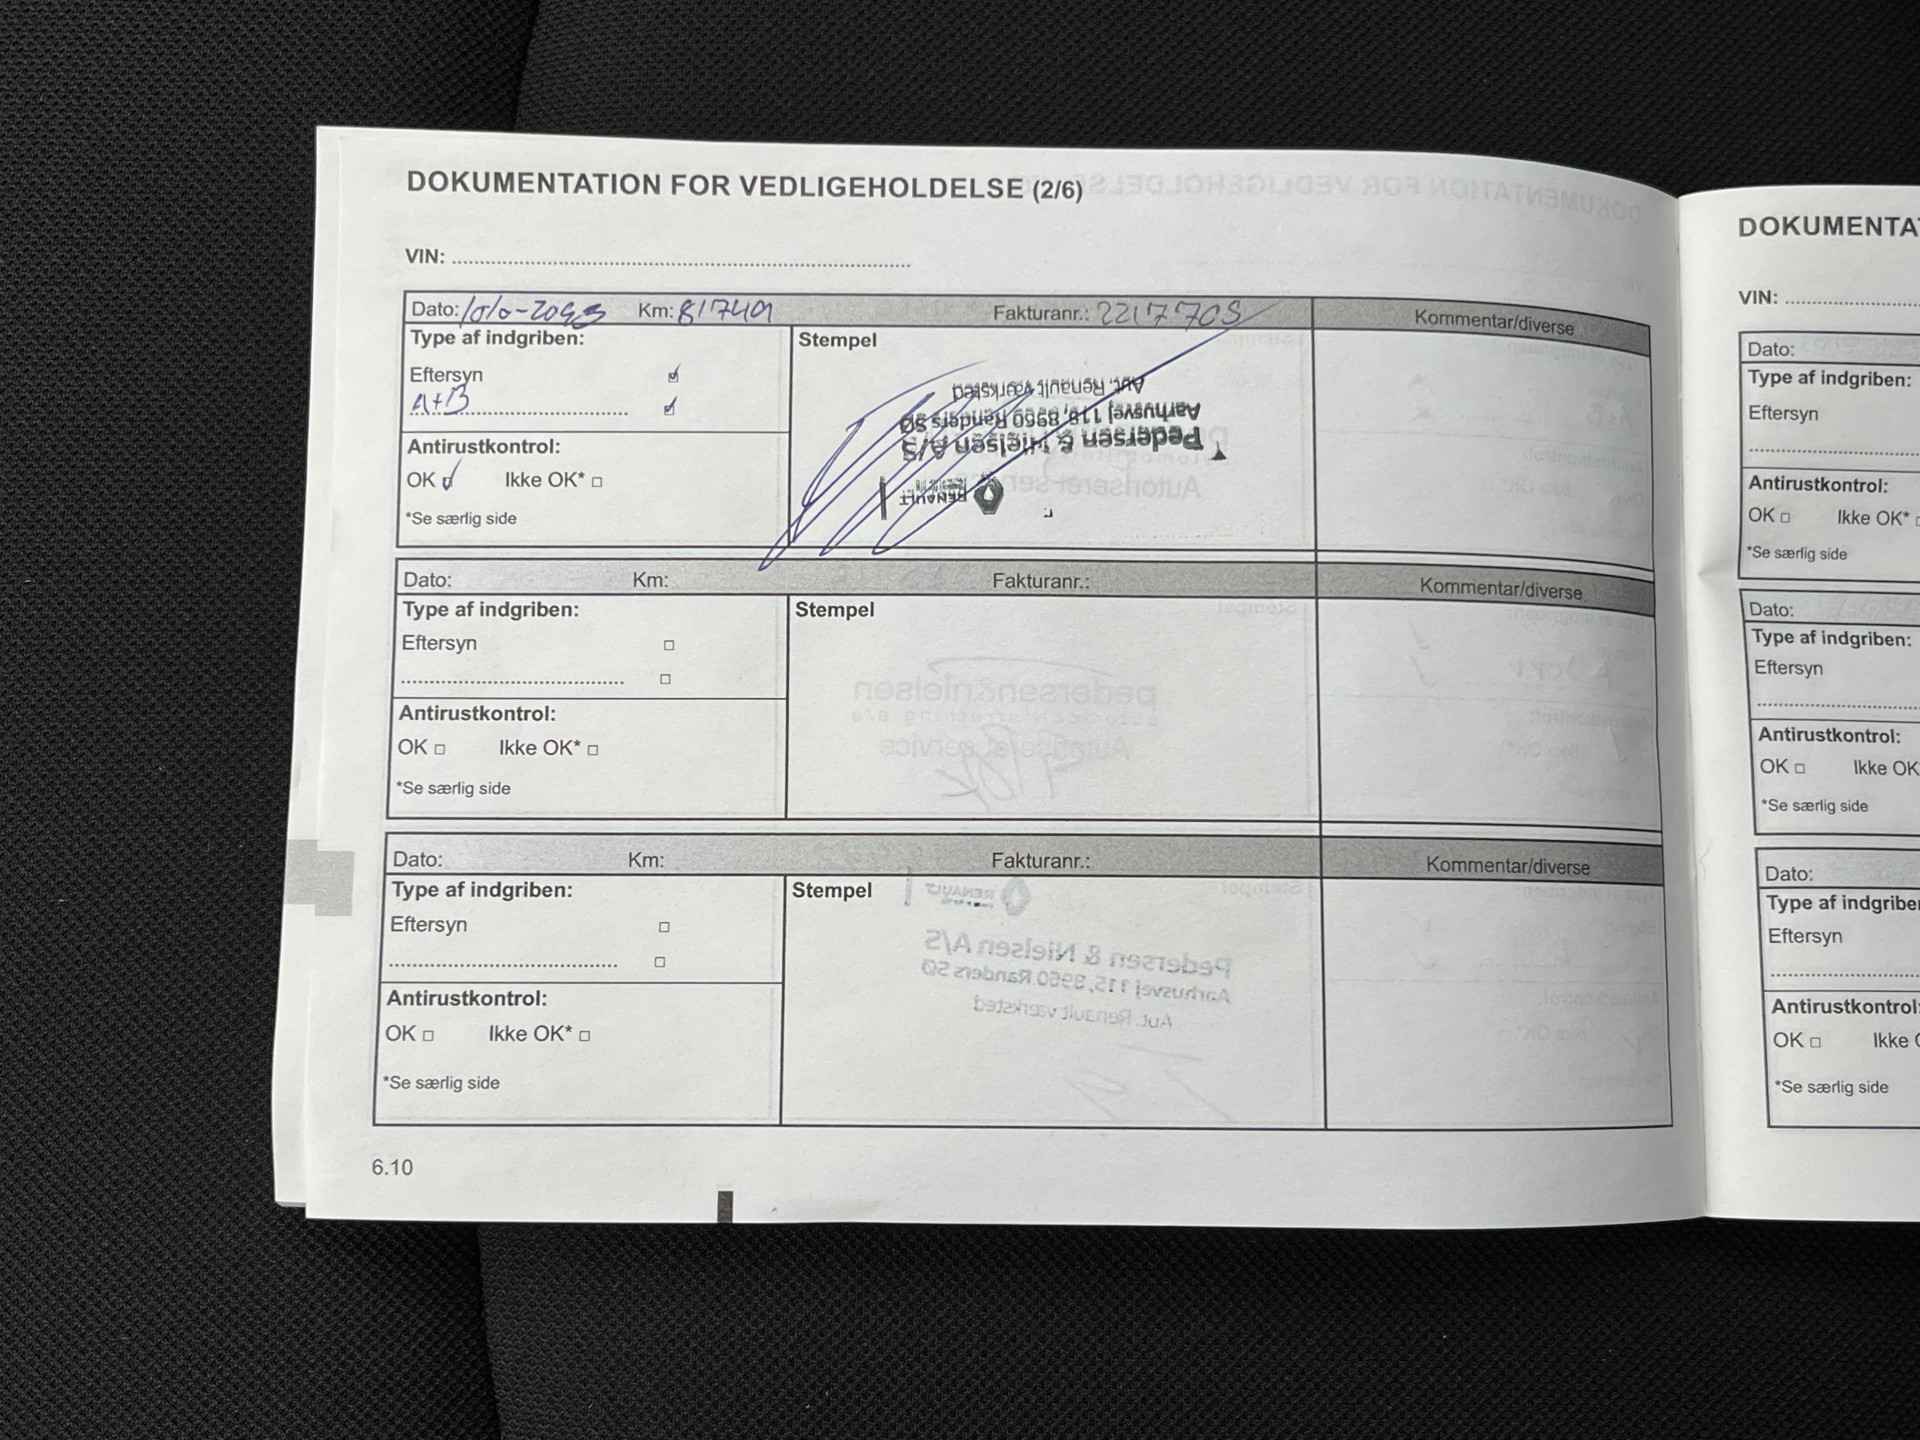 DOKUMENTATION FOR VEDLIGEHOLDELSE (2/6)
VIN:
Dato: Km: 81749 Fakturanr.: 2217703 Kommentar/diverse
Type af indgriben:
Eftersyn
A+B
Antirustkontrol:
OK Ikke OK*
*Se særlig side
Stempel
RENAULT
Pedersen & Nielsen A/S
Aarhusvej 115, 8960 Randers SØ
Aut. Renault værksted
Dato: Km: Fakturanr.: Kommentar/diverse
Type af indgriben:
Eftersyn
Antirustkontrol:
OK Ikke OK*
*Se særlig side
Stempel
Dato: Km: Fakturanr.: Kommentar/diverse
Type af indgriben:
Eftersyn
Antirustkontrol:
OK Ikke OK*
*Se særlig side
Stempel
6.10
DOKUMENTA
VIN:
Dato:
Type af indgriben:
Eftersyn
Antirustkontrol:
OK Ikke OK*
*Se særlig side
Dato:
Type af indgriben:
Eftersyn
Antirustkontrol:
OK Ikke OK
*Se særlig side
Dato:
Type af indgribe
Eftersyn
Antirustkontrol
OK Ikke
*Se særlig side